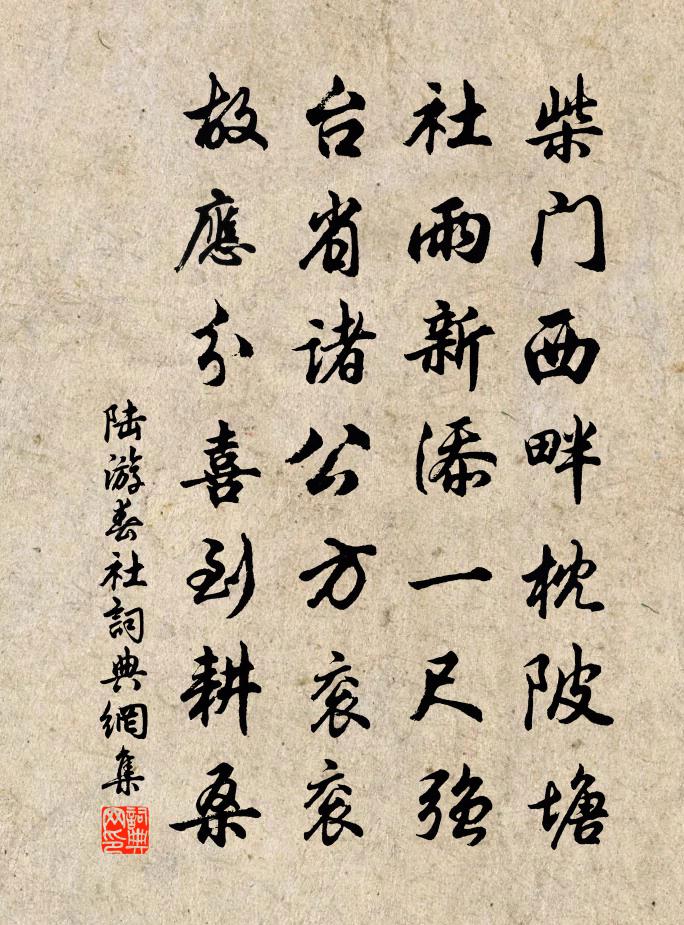 柴门西畔枕陂塘
社雨新添一尺強
台省諸公方衮衮
故應分喜到耕桑
陆游春社詞典網集
詞典网印